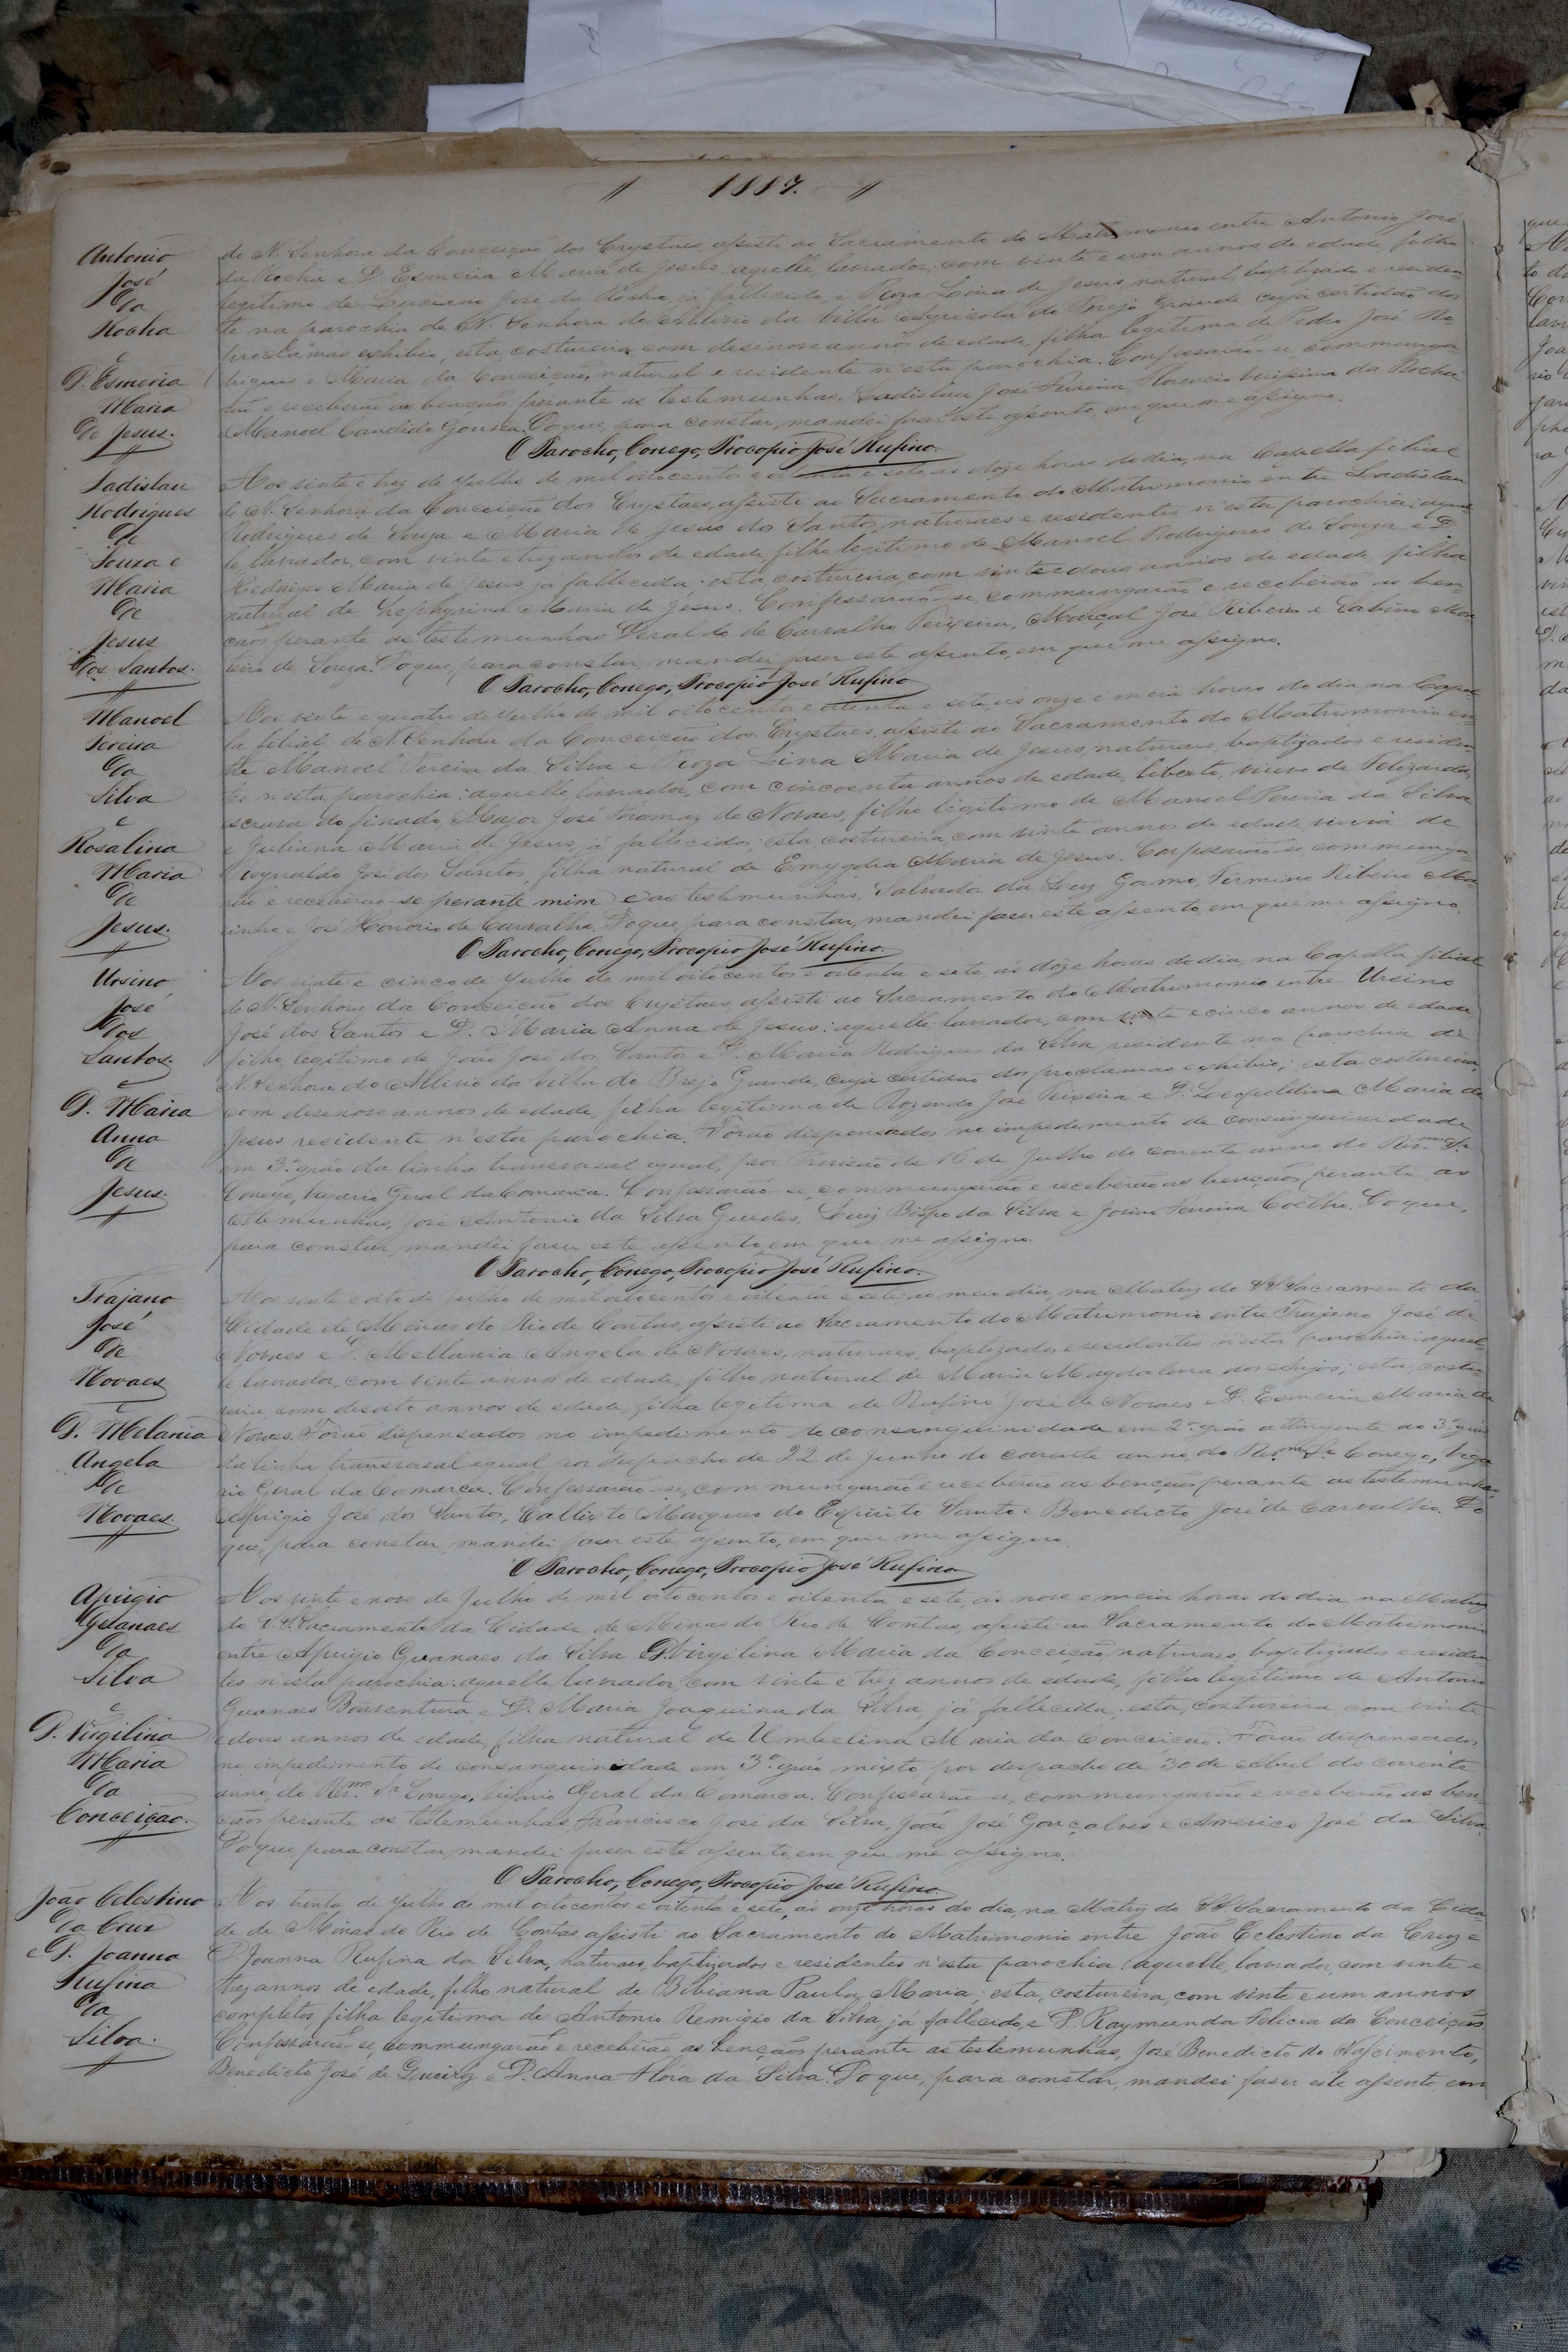 1887.
Antonio
José
da
Rocha
e
D. Esmeria
Maria
de Jesus.
de N. Senhora da Conceição dos Crystaes, assisti ao Sacramento do Matrimonio entre Antonio José
da Rocha e D. Esmeria Maria de Jesus: aquelle, lavrador, com vinte e um annos de edade, filho
legitimo de Luciano José da Rocha, já fallecido, e Roza Lina de Jesus natural, baptizado e residen
te na parochia de N. Senhora do Allivio da Villa Agricola do Brejo Grande cuja certidão dos
proclamas exhibio, esta, costureira com desenove annos de edade, filha legitima de Pedro José Ro-
drigues e Maria da Conceição, natural e residente n'esta parochia. Confessarão-se, commungarão
e receberão as bençãos perante as testemunhas, Ladislau José Pereira, Florencio Verissimo da Rocha
Manoel Candido Gouvea. Do que, para constar, mandei faser este assento, em que me assigno.
O Parocho, Conego, Procopio José Rufino.
Ladislau
Rodrigues
de
Souza e
Maria
de
Jesus
dos Santos.
Aos vinte e trez de Julho de mil oitocentos e oitenta e sete, as doze horas do dia, na Capella filial
de N. Senhora da Conceição dos Crystaes, assisti ao Sacramento do Matrimonio entre Ladislau
Rodrigues de Souza e Maria de Jesus dos Santos, naturaes e residentes n'esta parochia: aquel
le lavrador, com vinte e trez annos de edade, filho legitimo de Manoel Rodrigues de Souza e D.
Heduiges Maria de Jesus, já fallecida: esta, costureira, com vinte e dous annos de edade filha
natural de Zephyrina Maria de Jesus. Confessarão-se, commungarão e receberão as ben-
çãos perante as testemunhas Geraldo de Carvalho Teixeira, Marçal José Ribeiro e Sabino Mon
teiro de Souza. Do que, para constar, mandei faser este assento, em que me assigno.
O Parocho, Conego, Procopio José Rufino
Manoel
Pereira
da
Silva
e
Rosalina
Maria
de
Jesus.
Aos vinte e quatro de Julho de mil oitocentos e oitenta e sete, as onze e meia horas do dia, na Capel
la filial de N. Senhora da Conceição dos Crystaes, assisti ao Sacramento do Matrimonio en-
tre Manoel Pereira da Silva e Roza Lina Maria de Jesus, naturaes, baptizados e residen-
tes n'esta parochia: aquelle lavrador, com cincoenta annos de edade, liberto, viuvo de Felizarda,
escrava do finado Major José Thomaz de Novaes, filho legitimo de Manoel Pereira da Silva
e Juliana Maria de Jesus, já fallecidos: esta, costureira, com vinte annos de edade viuva de
Reginaldo José dos Santos, filha natural de Emygdia Maria de Jesus. Confessarão-se communga-
rão e receberão-se perante mim e as testemunhas, Salvador da Luz Gama, Firmino Ribeiro Ma-
rinho e José Honorio de Carvalho. Do que, para constar, mandei faser este assento, em que me assigno.
O Parocho, Conego, Procopio José Rufino.
Ursino
José
dos
Santos
e
D. Maria
Anna
de
Jesus.
Aos vinte e cinco de Julho de mil oitocentos e oitenta e sete, as doze horas do dia, na Capella filial
de N. Senhora da Conceição dos Crystaes, assisti ao Sacramento do Matrimonio entre Ursino
José dos Santos e D. Maria Anna de Jesus: aquelle lavrador, com vinte e cinco annos de edade
filho legitimo de João José dos Santos e D. Maria Rodrigues da Silva, residente na parochia de
N. Senhora do Allivio da Villa do Brejo Grande, cuja certidão dos proclamas exhibio; esta costureira,
com desenove annos de edade, filha legitima de Rozendo José Teixeira e D. Leopoldina Maria de
Jesus residente n'esta parochia. Forão dispensados no impedimento de consanguinidade
em 3.º gráo da linha transversal egual, por Provisão de 16 de Julho do corrente anno do Rev.mo Sr.
Conego, Vigario Geral da Comarca. Confessarão-se, commungarão e receberão as bençãos perante as
testemunhas, José Antonio da Silva Guedes, Luiz Bispo da Silva e Jovino Pereira Coêlho. Do que,
para constar, mandei faser este assento em que me assigno.
O Parocho, Conego, Procopio José Rufino.
Trajano
José
de
Novaes
e
D. Melania
Angela
de
Novaes.
Aos vinte e oito de Julho de mil oitocentos e oitenta e sete, ao meio dia, na Matriz do SS. Sacramento da
Cidade de Minas do Rio de Contas, assisti ao Sacramento do Matrimonio entre Trajano José de
Novaes e D. Mellania Angela de Novaes, naturaes, baptizados e residentes n'esta parochia: aquel-
le lavrador, com vinte annos de edade, filho natural de Maria Magdalena dos Anjos; esta, costu-
reira, com desoito annos de edade, filha legitima de Rufino José de Novaes e D. Esmeria Maria de
Novaes. Forão dispensados no impedimento de consanguinidade em 2.º gráo attingente ao 3.º gráo
da linha transversal egual por despacho de 22 de Junho do corrente anno, do Rev.mo Sr. Conego, Viga
rio Geral da Comarca. Confessarão-se, commungarão e receberão as bençãos perante as testemunhas,
Aprigio José dos Santos, Callixto Marques do Espirito Santo e Benedicto José de Carvalho. Do
que, para constar, mandei faser este assento, em que me assigno.
O Parocho, Conego, Procopio José Rufino
Aprigio
Guanaes
da
Silva
e
D. Virgilina
Maria
da
Conceição.
Aos vinte e nove de Julho de mil oitocentos e oitenta e sete, as nove e meia horas do dia, na Matriz
do S.S. Sacramento da Cidade de Minas do Rio de Contas, assisti ao Sacramento do Matrimonio
entre Aprigio Guanaes da Silva D. Virgilina Maria da Conceição, naturaes, baptizados e residen
tes n'esta parochia: aquelle, lavrador, com vinte e trez annos de edade, filho legitimo de Antonio
Guanaes Boaventura e D. Maria Joaquina da Silva, já fallecida; esta, costureira, com vinte
e dous annos de edade, filha natural de Umbelina Maria da Conceição. Forão dispensados
no impedimento de consanguinidade em 3.º gráo mixto por despacho de 30 de Abril do corrente
anno, do Rev.mo Sr. Conego, Vigario Geral da Comarca. Confessarão-se, commungarão e receberão as ben-
çãos perante as testemunhas Francisco José da Silva, João José Gonçalves e Americo José da Silva.
Do que para constar, mandei faser este assento, em que me assigno.
O Parocho, Conego, Procopio José Rufino.
João Celestino
da Cruz
e D. Joanna
Rufina
da
Silva.
Aos trinta de Julho de mil oitocentos e oitenta e sete, as onze horas do dia, na Matriz do SS Sacramento da Cida-
de de Minas do Rio de Contas, assisti ao Sacramento do Matrimonio entre João Celestino da Cruz e
D. Joanna Rufina da Silva, naturaes, baptizados e residentes n'esta parochia: aquelle, lavrador, com vinte e
trez annos de edade, filho natural de Bibiana Paula Maria; esta, costureira, com vinte e um annos
completos, filha legitima de Antonio Remigio da Silva, já fallecido, e D. Raymunda Felicia da Conceição.
Confessarão-se, commungarão e receberão as bençãos perante as testemunhas, José Benedicto do Nascimento,
Benedicto José de Queiroz e D. Anna Flora da Silva. Do que, para constar, mandei faser este assento, em